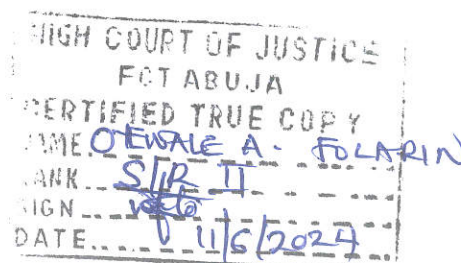 HIGH COURT OF JUSTICE
FCT ABUJA
CERTIFIED TRUE COPY
NAME. OTEWALE A. FOLARIN
RANK S/R II
SIGN
DATE.... 11/6/2024